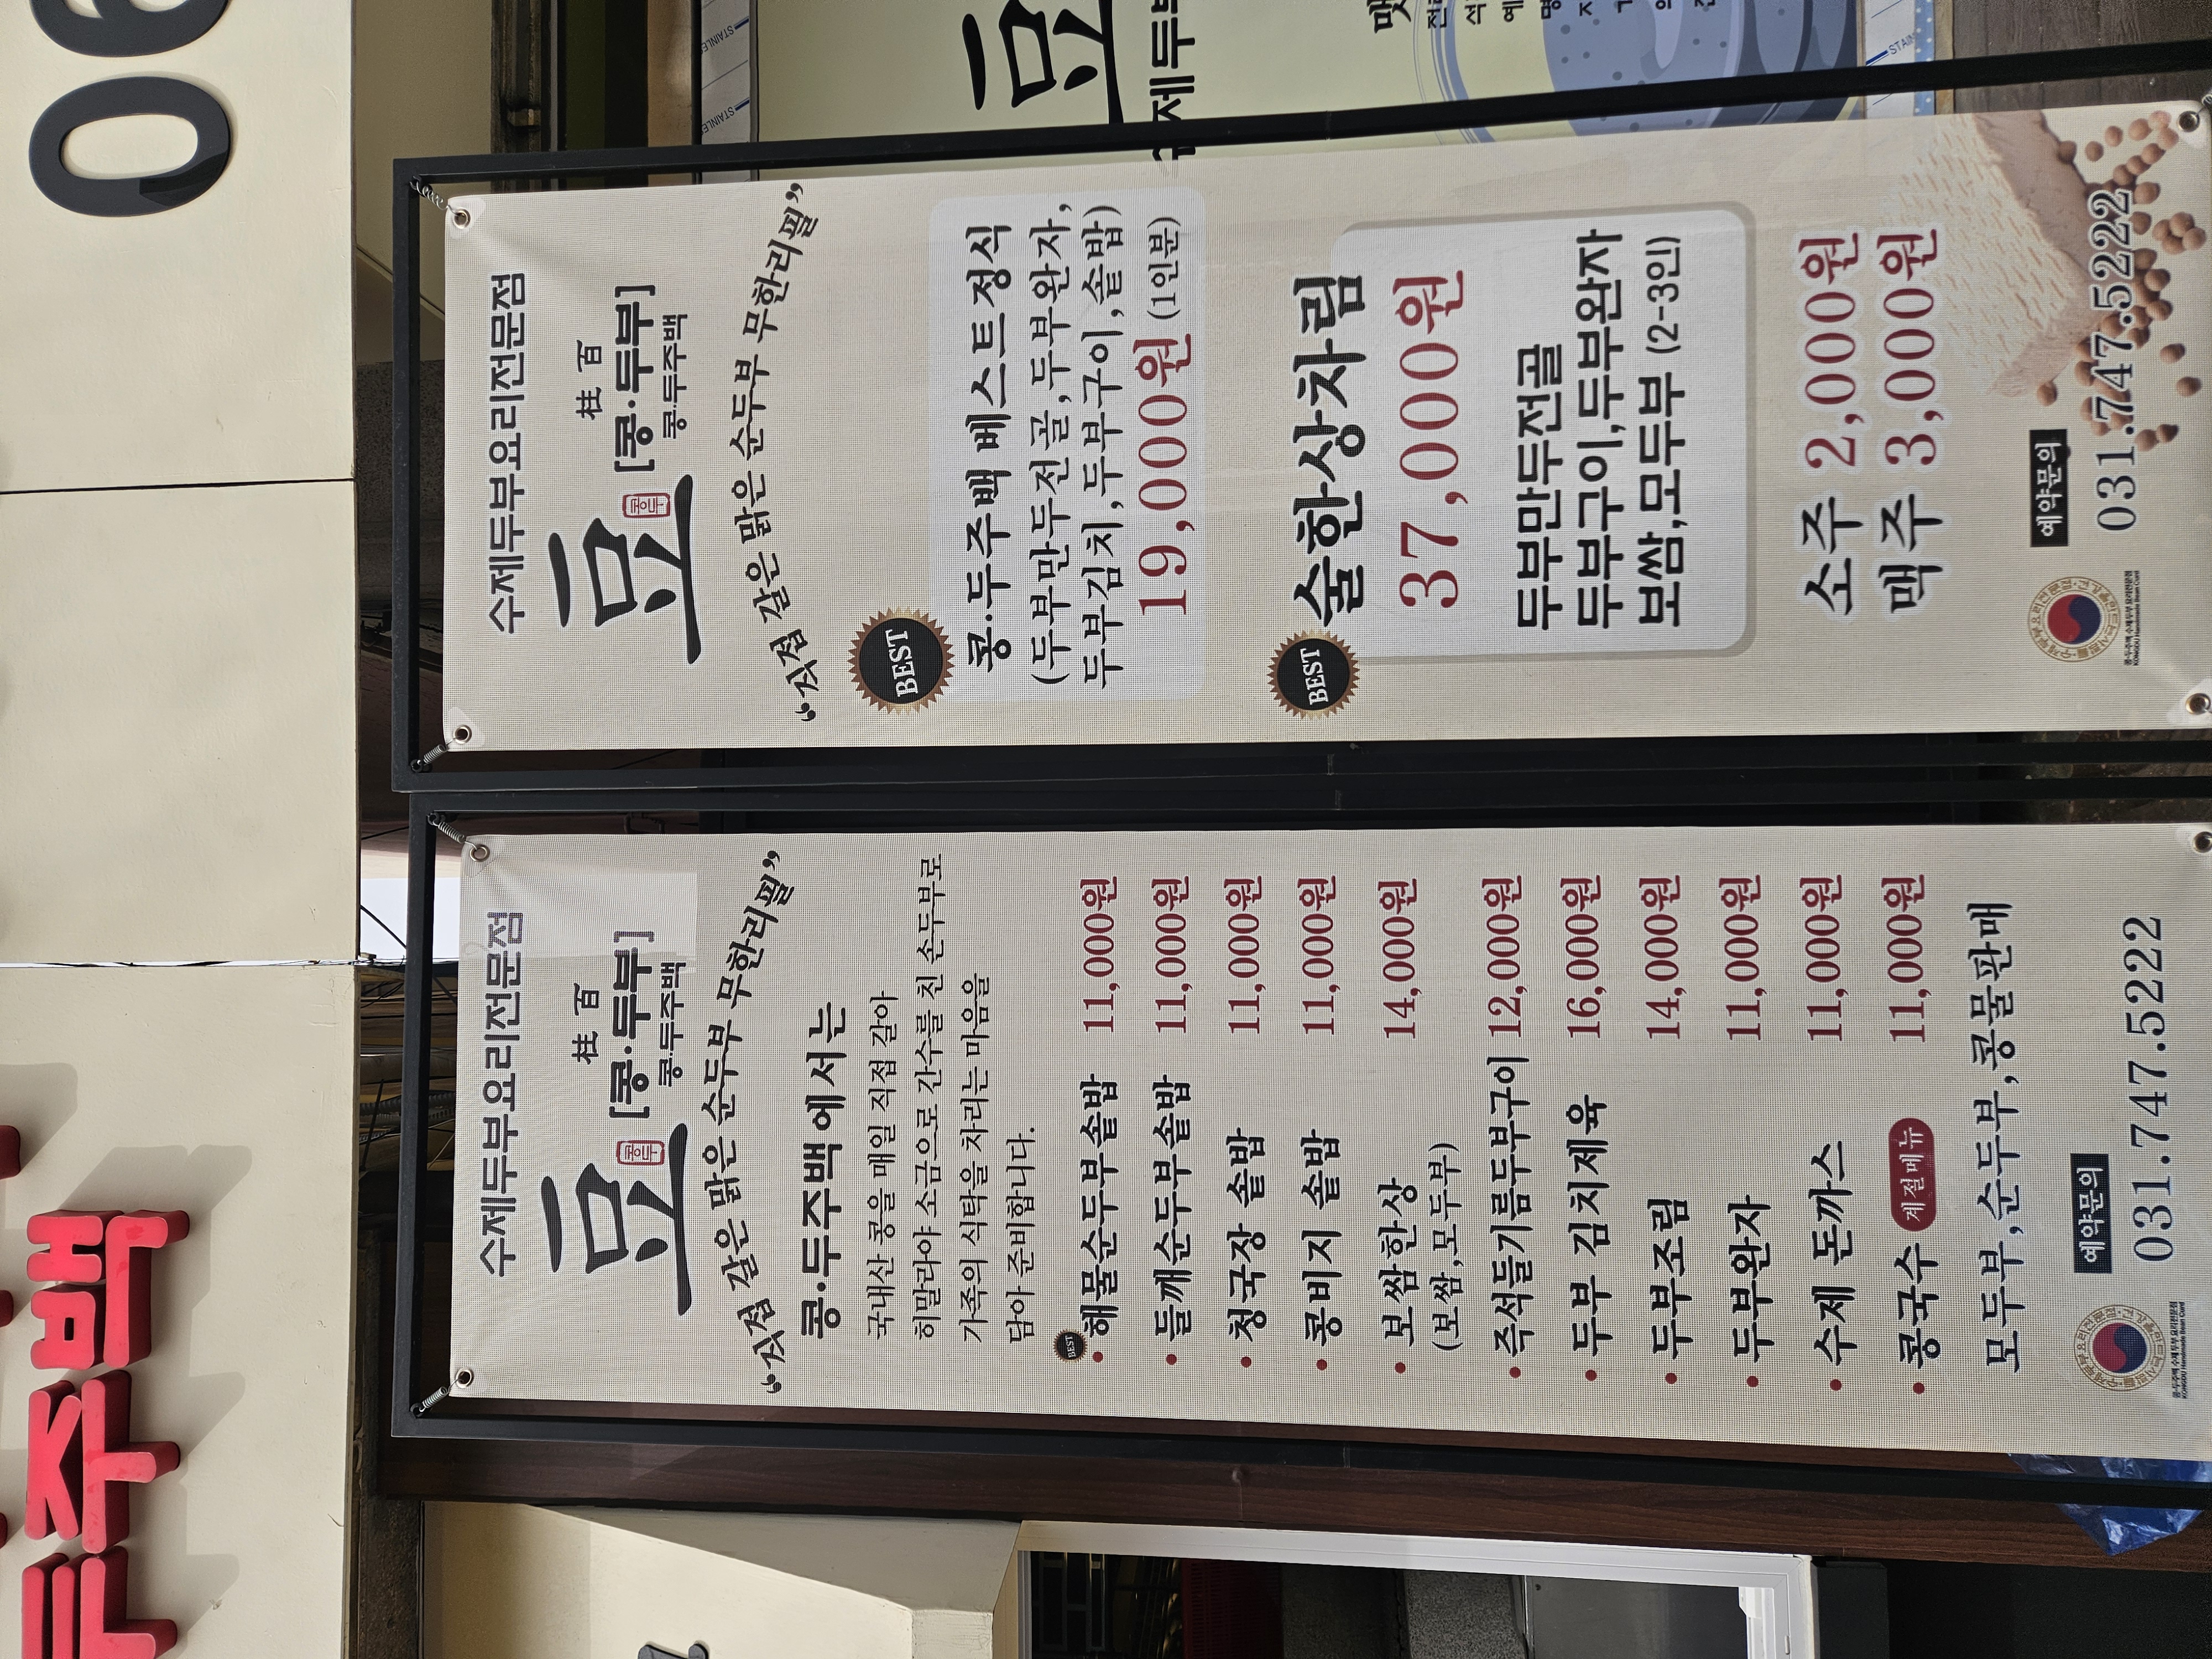 수제두부요리전문점
柱百
豆
콩두
[콩·두부]
콩·두주백
“갓절 갈은 맑은 순두부 무한리필”
콩·두주백에서는
국내산 콩을 매일 직접 갈아
히말라야 소금으로 간수를 친 손두부로
가족의 식탁을 차리는 마음을
담아 준비합니다.
BEST
• 해물순두부솥밥 11,000원
• 들깨순두부솥밥 11,000원
• 청국장 솥밥 11,000원
• 콩비지 솥밥 11,000원
• 보쌈한상 14,000원
(보쌈,모두부)
• 즉석들기름두부구이 12,000원
• 두부 김치제육 16,000원
• 두부조림 14,000원
• 두부완자 11,000원
• 수제 돈까스 11,000원
• 콩국수 계절메뉴 11,000원
모두부,순두부,콩물판매
예약문의
031.747.5222
콩·두주백 수제두부요리전문점
수제두부요리전문점
柱百
豆
콩두
[콩·두부]
콩·두주백
“갓절 갈은 맑은 순두부 무한리필”
BEST
콩·두주백 베스트정식
(두부만두전골,두부완자,
두부김치,두부구이,솥밥)
19,000원 (1인분)
BEST
술한상차림
37,000원
두부만두전골
두부구이,두부완자
보쌈,모두부 (2-3인)
소주 2,000원
맥주 3,000원
예약문의
031.747.5222
콩·두주백 수제두부요리전문점
주백
06
豆
제두
STAINLE
STAINLE
STAIN